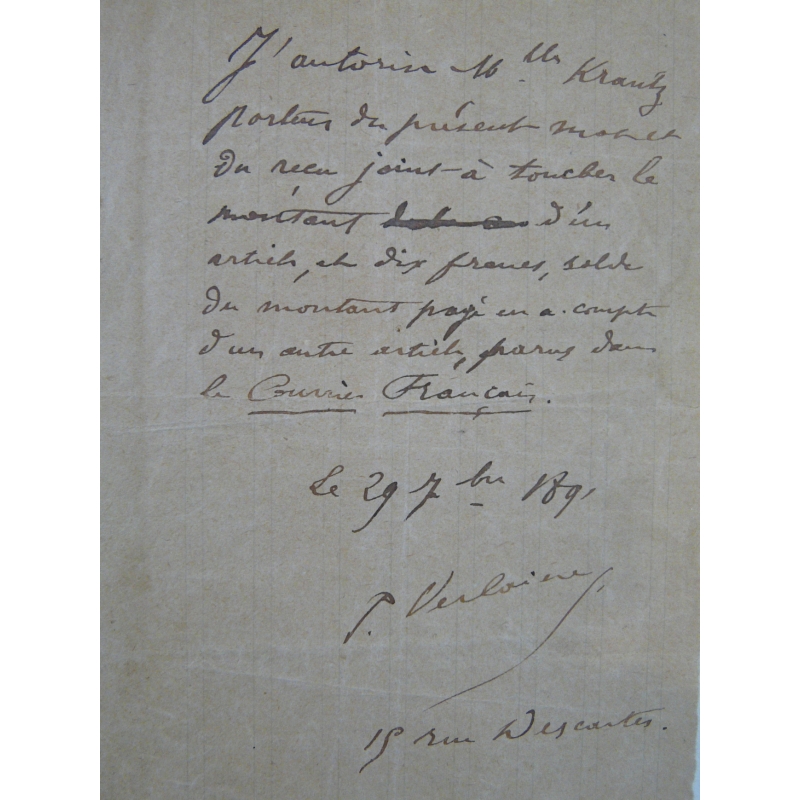 J'autorise Mlle Krantz
porteur du présent mot et
du reçu joint à toucher le
montant d'un
article, et dix francs, solde
du montant payé en a-compte
d'un autre article, parus dans
le Courrier Français.
Le 29 7bre 1891
P. Verlaine
15 rue Descartes.